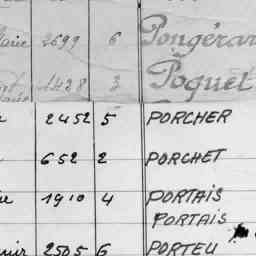 Marie 2699 6 Pongérar
1428 3 Poquet
2452 5 PORCHER
652 2 PORCHET
1910 4 PORTAIS
PORTAIS
2505 6 PORTEU